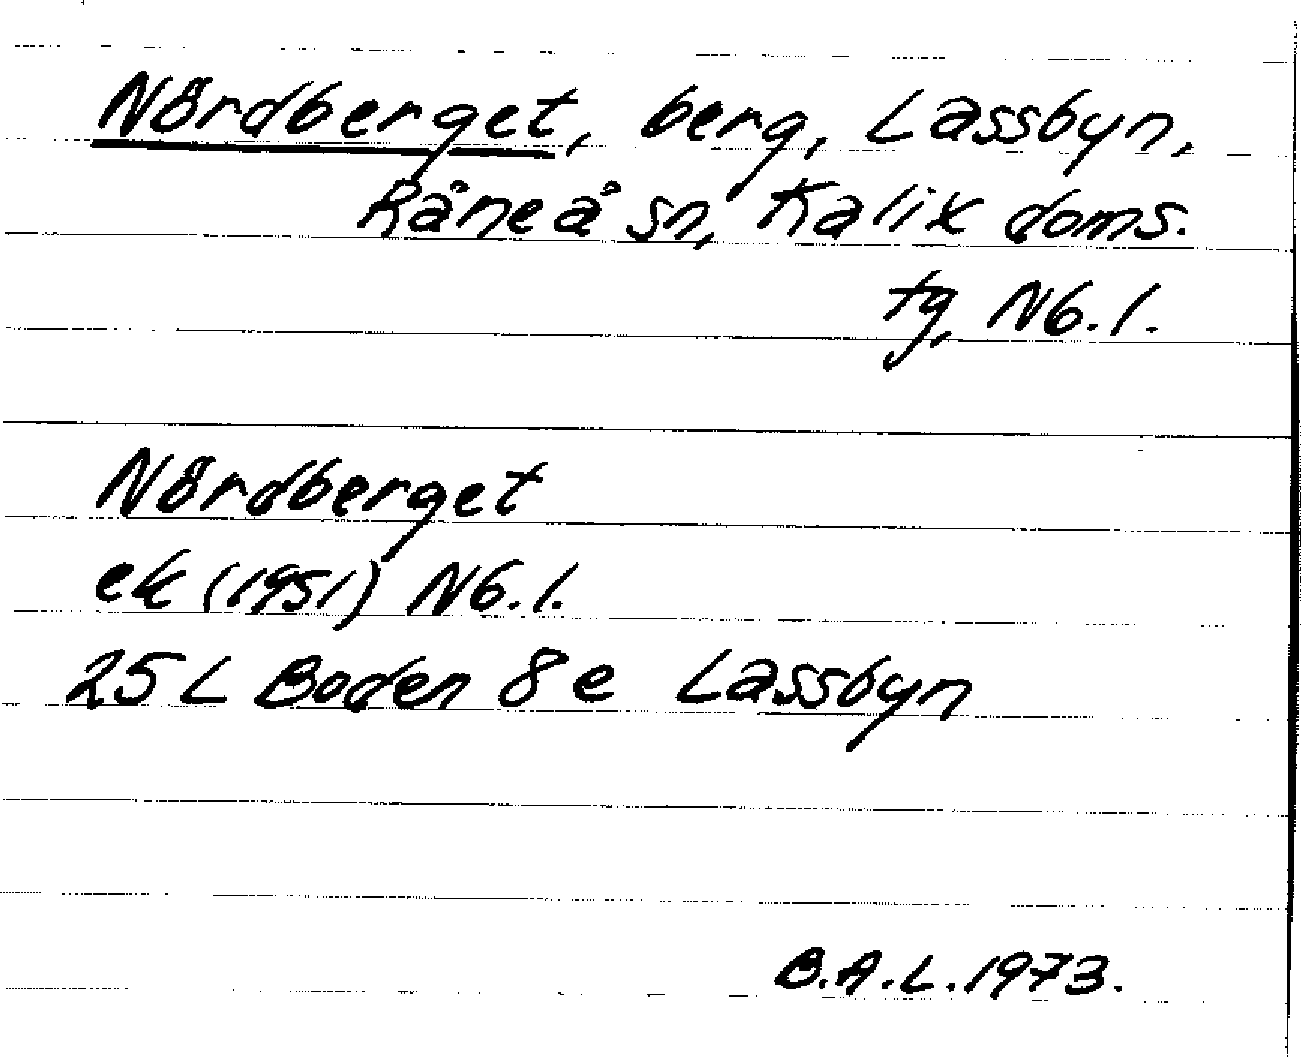 Nördberget, berg, Lassbyn,
Råneå sn, Kalix doms.
tg, Nb.l.
Nördberget
ek (1951) Nb.l.
25 L Boden 8e Lassbyn
B.A.L. 1973.